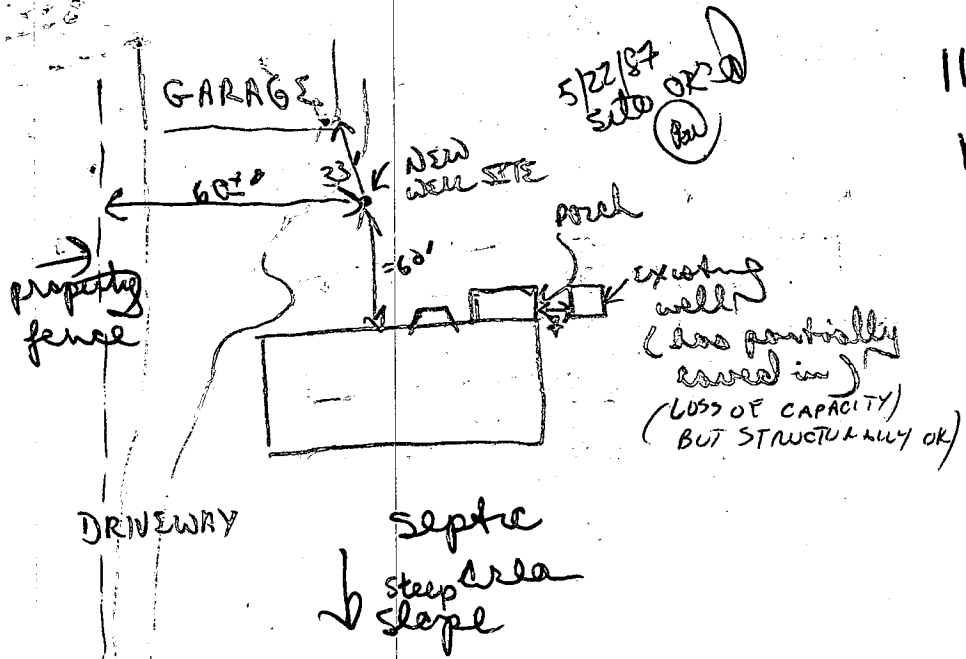 GARAGE
5/22/87
site OK'ed
23'
NEW
WELL SITE
60±'
porch
≈60'
property
fence
existing
well
(has partially
caved in)
(LOSS OF CAPACITY)
BUT STRUCTURALLY OK)
DRIVEWAY
septic
area
steep
slope